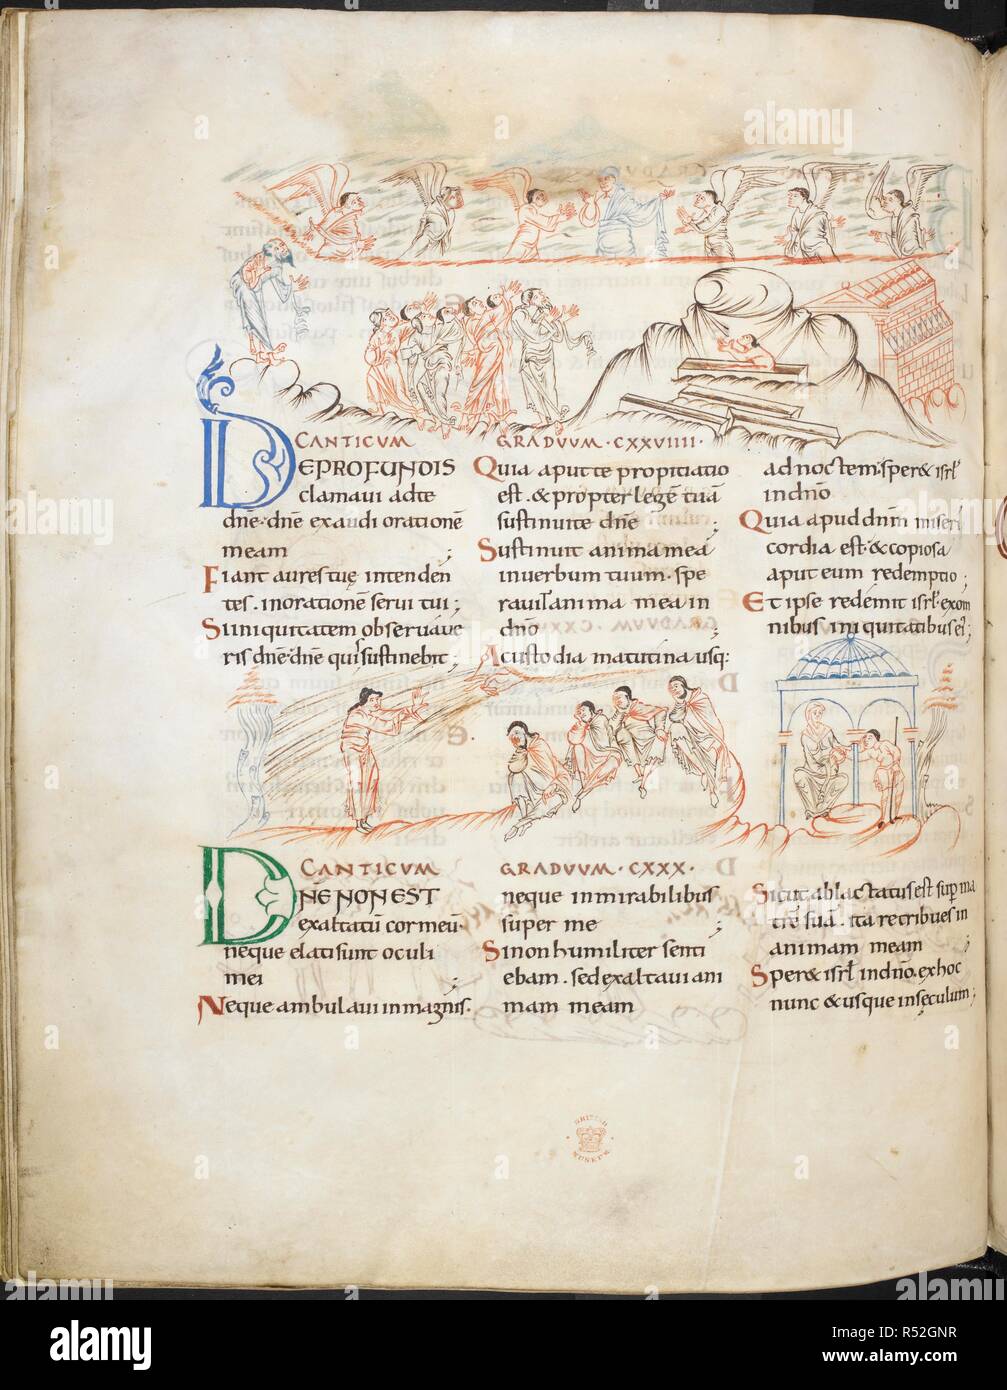 CANTICUM GRADUUM · CXXVIIII ·
DEPROFUNDIS
clamaui adte
dn̄e · dn̄e exaudi orationē
meam ;
Fiant aures tuę intenden
tes . inorationē serui tui ;
Siiniquitatem obseruaue
ris dn̄e · dn̄e quis sustinebit ;
Quia aput te propitiatio
est . & propter legē tuā
sustinui te dn̄e ;
Sustinuit anima mea
inuerbum tuum · spe
rauit anima mea in
dn̄o ;
A custodia matutina usq:
ad noctem · sper& isrl̄
in dn̄o
Quia apud dn̄m miseri
cordia est · & copiosa
aput eum redemptio ;
Et ipse redemit isrl̄ · exom
nibus iniquitatibus ei' ;
CANTICUM GRADUUM · CXXX ·
DN̄E NON EST
exaltatū cor meū ·
neque elati sunt oculi
mei ;
Neque ambulaui in magnis ·
neque in mirabilibus
super me ;
Si non humiliter senti
ebam . sed exaltaui ani
mam meam
Sicut ablactatus est sup ma
tre suā . ita retribues in
animam meam ;
Sper& isrl̄ in dn̄o . ex hoc
nunc & usque in sęculum ;
BRITISH
MUSEUM
alamy
Image ID: R52GNR
www.alamy.com